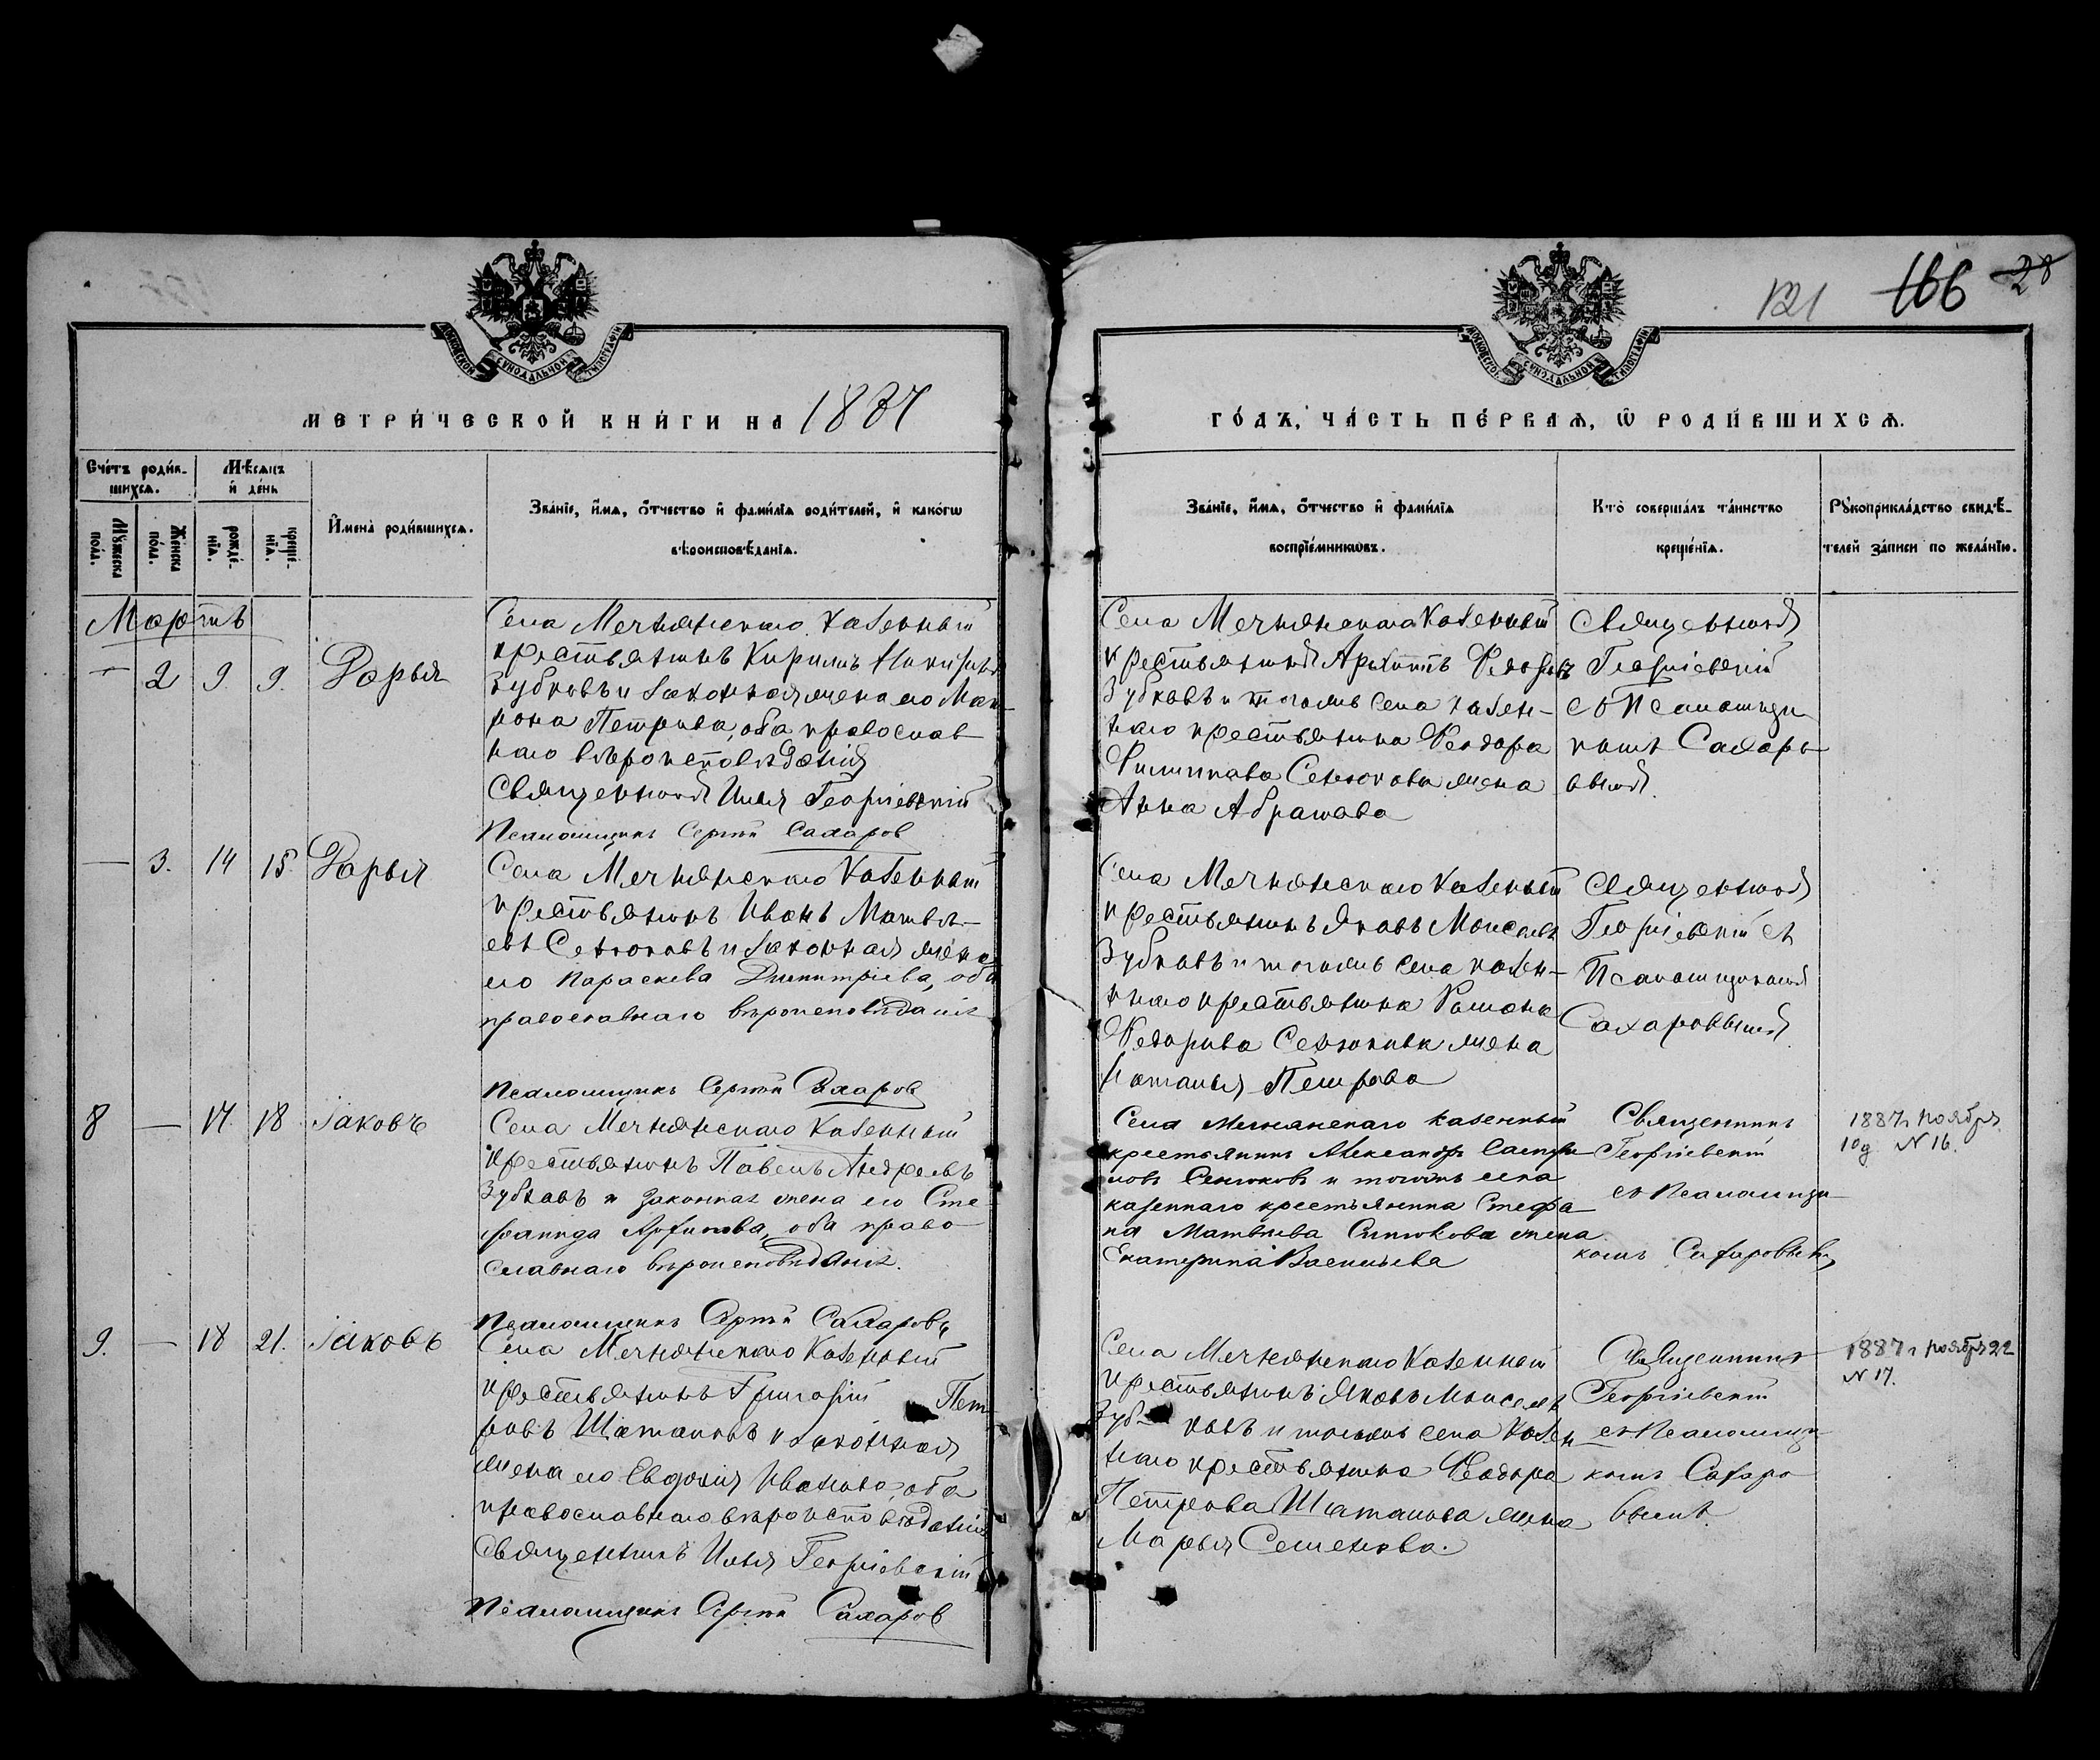 121 166 28
МОСКОВСКОЙ СѴНОДАЛЬНОЙ ТИПОГРАФІИ
МОСКОВСКОЙ СѴНОДАЛЬНОЙ ТИПОГРАФІИ
МЕТРИ́ЧЕСКОЙ КНИ́ГИ НА 1887
ГО́ДЪ, ЧА́СТЬ ПЕ́РВАѦ, Ѿ РОДИ́ВШИХСѦ.
Сче́тъ роди́в-
шихсѧ.
Мꙋ́жеска по́ла.
Же́нска по́ла.
Мѣ́сѧцъ
и де́нь
рожде́-
нїѧ.
креще́-
нїѧ.
Имена̀ роди́вшихсѧ.
Зва́нїе, и́мѧ, о́тчество и фами́лїѧ роди́телей, и како́гѡ
вѣроисповѣ́данїѧ.
Зва́нїе, и́мѧ, о́тчество и фами́лїѧ
воспрїе́мникѡвъ.
Кто̀ соверша́лъ та́инство
креще́нїѧ.
Рꙋкоприкла́дство свидѣ́-
телей за́писи по жела́нїю.
Мартъ
— 2 9 9. Дарья
Села Мечнянскаго казенный
крестьянинъ Кирилъ
Зубковъ и законная жена его Мат
рона Петрова, оба православ
наго вѣроисповѣданія
Священникъ Илья Георгіевскій
Псаломщикъ Сергѣй Сахаров
Села Мечнянскаго Казенный
крестьянинъ Архиппъ Ѳедоровъ
Зубковъ и тогожъ села казен-
наго крестьянина Ѳеодора
Филиппова Сенюкова жена
Анна Абрамова
Священникъ
Георгіевскій
съ Псаломщи
комъ Сахаро
вымъ.
— 3. 14 15. Дарья
Села Мечнянскаго Казенный
крестьянинъ Иванъ Матвѣ-
евъ Сенюковъ и законная жена
его Параскева Димитріева, оба
православнаго вѣроисповѣданія
Псаломщикъ Сергѣй Сахаров
Села Мечнянскаго Казенный
крестьянинъ Яковъ Моисеевъ
Зубковъ и тогожъ села казен-
наго крестьянина Романа
Ѳедорова Сенюкова жена
Наталья Петрова
Священникъ
Георгіевскій съ
Псаломщикомъ
Сахаровымъ
8 — 17. 18 Іаковъ
Села Мечнянскаго Казенный
крестьянинъ Павелъ Андреевъ
Зубковъ и законная жена его Сте
фанида Архипова, оба право
славнаго вѣроисповѣданія.
Псаломщикъ Сергѣй Сахаровъ
Села Мечнянскаго казенный
крестьянинъ Александръ
Сенюковъ и тогожъ села
казеннаго крестьянина Стефа
на Матвѣева Сенюкова жена
Екатерина Васильева
Священникъ
Георгіевскій
съ Псаломщи
комъ Сахаровымъ
1887 г ноября
10д N 16.
9. — 18 21. Іаковъ
Села Мечнянскаго Казенный
крестьянинъ Григорій Пет
ровъ Шаталовъ и законная
жена его Евдокія Иванова, оба
православнаго вѣроисповѣданія
Священникъ Илья Георгіевскій
Псаломщикъ Сергѣй Сахаров
Села Мечнянскаго Казенный
крестьянинъ Яковъ Моисеевъ
Зуб ковъ и тогожъ села Казен
наго крестьянина Ѳеодора
Петрова Шаталова жена
Марья Семенова.
Священникъ
Георгіевскій
съ Псаломщи
комъ Сахаро
вымъ
1887 г ноября 22
N 17.